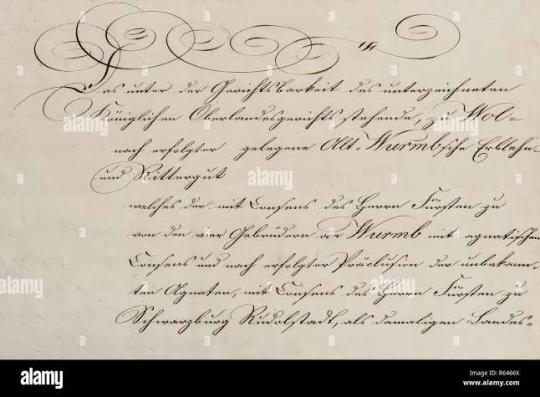 Das unter der Gerichtsbarkeit des unterzeichneten
Königlichen Oberlandesgerichts stehende, zu Wol-
nach erfolgter gelegene Alt-Wurmb'sche Erblehn-
und Rittergut
welches der mit Consens des Herrn Fürsten zu
von den vier Gebrüdern von Wurmb mit agnatischen
Consens und nach erfolgter Präclusion der unbekann-
ten Agnaten, mit Consens des Herrn Fürsten zu
Schwarzburg Rudolstadt, als damaligen Landes-
alamy
Image ID: R6466X
www.alamy.com